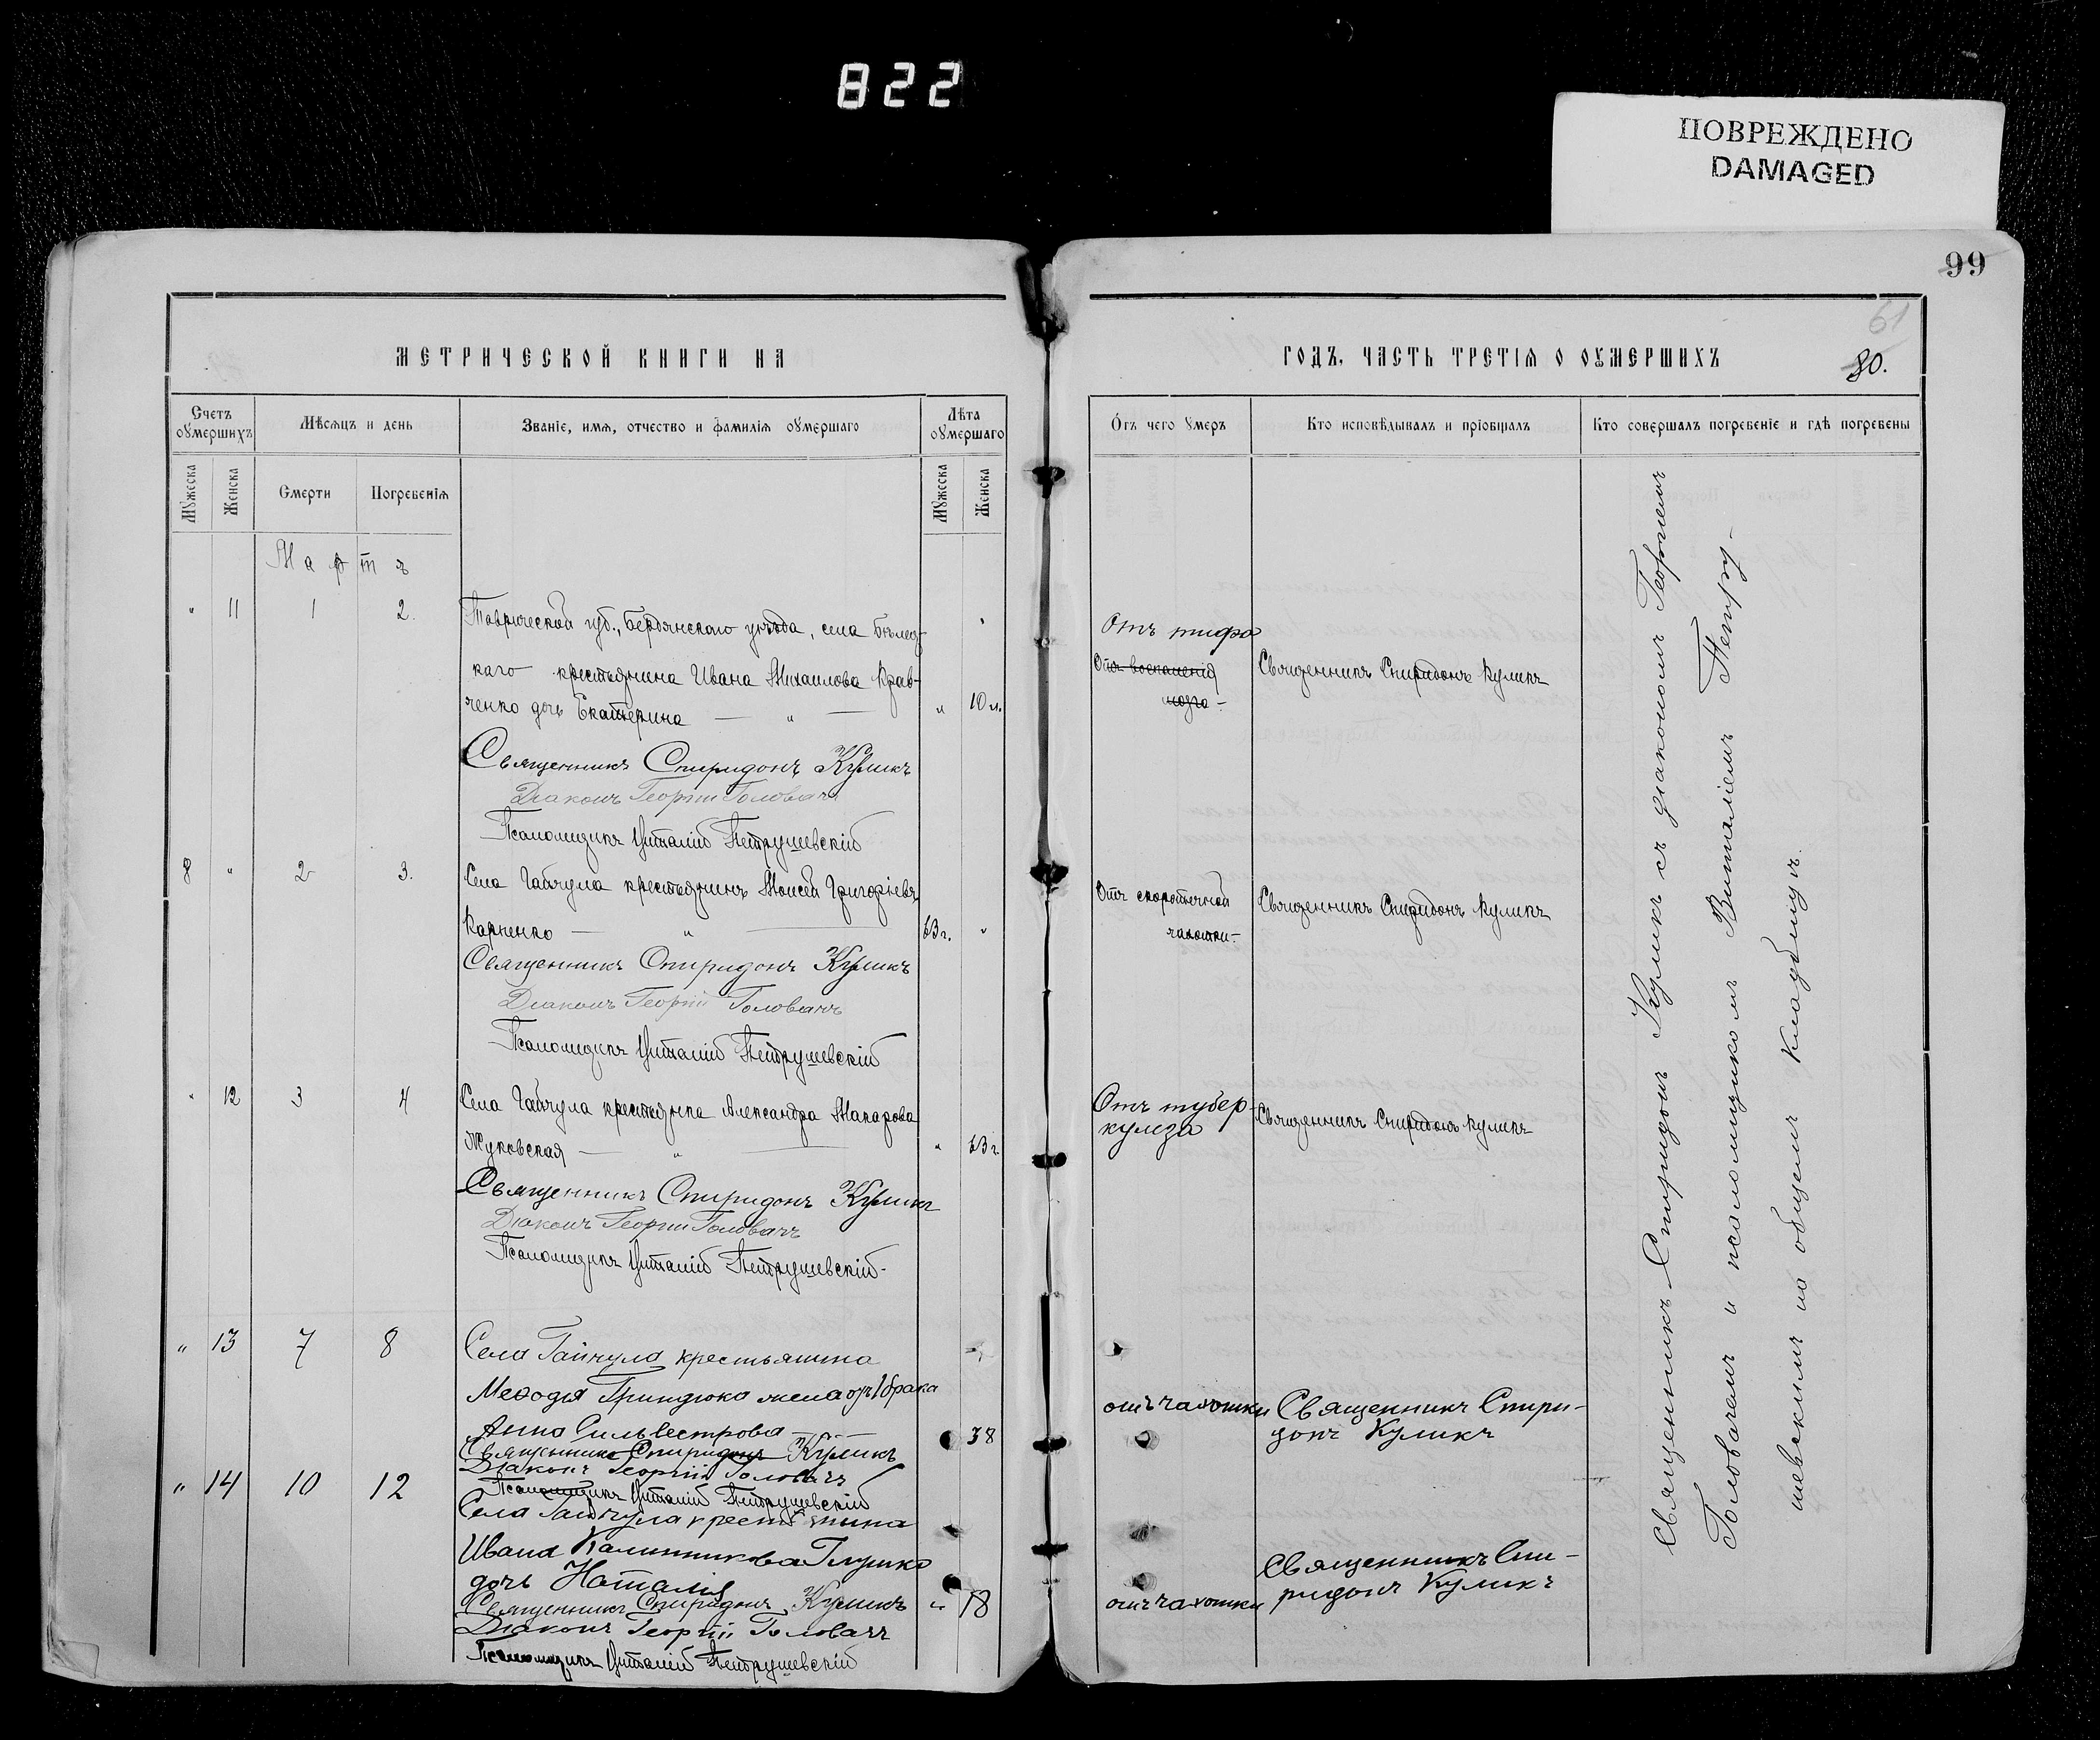 822
ПОВРЕЖДЕНО
DAMAGED
99
61
80.
МЕТРИЧЕСКОЙ КНИГИ НА
ГОДЪ, ЧАСТЬ ТРЕТІѦ О ОУМЕРШИХЪ
Счетъ оумершихъ
Мѣсѧцъ и день
Званіе, имѧ, отчество и фамиліѧ оумершаго
Лѣта оумершаго
Отъ чего умеръ
Кто исповѣдывалъ и пріобщалъ
Кто совершалъ погребеніе и гдѣ погребены
Мужеска
Женска
Смерти
Погребеніѧ
Мужеска
Женска
Мартъ
" 11 1 2. Таврической губ., Бердянскаго уѣзда, села
каго крестьянина Ивана Михаилова Крав-
ченко дочь Екатерина — " — " 10 л.
Отъ тифа
Отъ воспаленія
мозга -
Священникъ Спиридонъ Куликъ
Священникъ Спиридонъ Куликъ
Діаконъ Георгій Головачъ
Псаломщикъ Виталій Петрушевскій
8 " 2 3. Села Гайчула крестьянинъ Моисей Григоріевъ
Карпенко — " — 63 г. "
Отъ скоротечной
чахотки -
Священникъ Спиридонъ Куликъ
Священникъ Спиридонъ Куликъ
Діаконъ Георгій Головачъ
Псаломщикъ Виталій Петрушевскій
" 12 3 4 Села Гайчула крестьянка Александра Макарова
Жуковская — " — " 63 г.
Отъ тубер-
кулеза
Священникъ Спиридонъ Куликъ
Священникъ Спиридонъ Куликъ
Діаконъ Георгій Головачъ
Псаломщикъ Виталій Петрушевскій -
" 13 7 8 Села Гайчула крестьянина
Меѳодія Гриндюка жена отъ 1 брака
Анна Сильвестрова 38
отъ чахотки
Священникъ Спири-
донъ Куликъ
Священникъ Спиридонъ Куликъ
Діаконъ Георгій Головачъ
Псаломщикъ Виталій Петрушевскій
" 14 10 12
Села Гайчула крестьянина
Ивана Калинникова Глушко
дочь Наталія
" 18
отъ чахотки
Священникъ Спи-
ридонъ Куликъ
Священникъ Спиридонъ Куликъ
Діаконъ Георгій Головачъ
Псаломщикъ Виталій Петрушевскій
Священникъ Спиридонъ Куликъ съ діакономъ Георгіемъ
Головачемъ и псаломщикомъ Виталіемъ Петру-
шевскимъ на общемъ кладбищѣ.